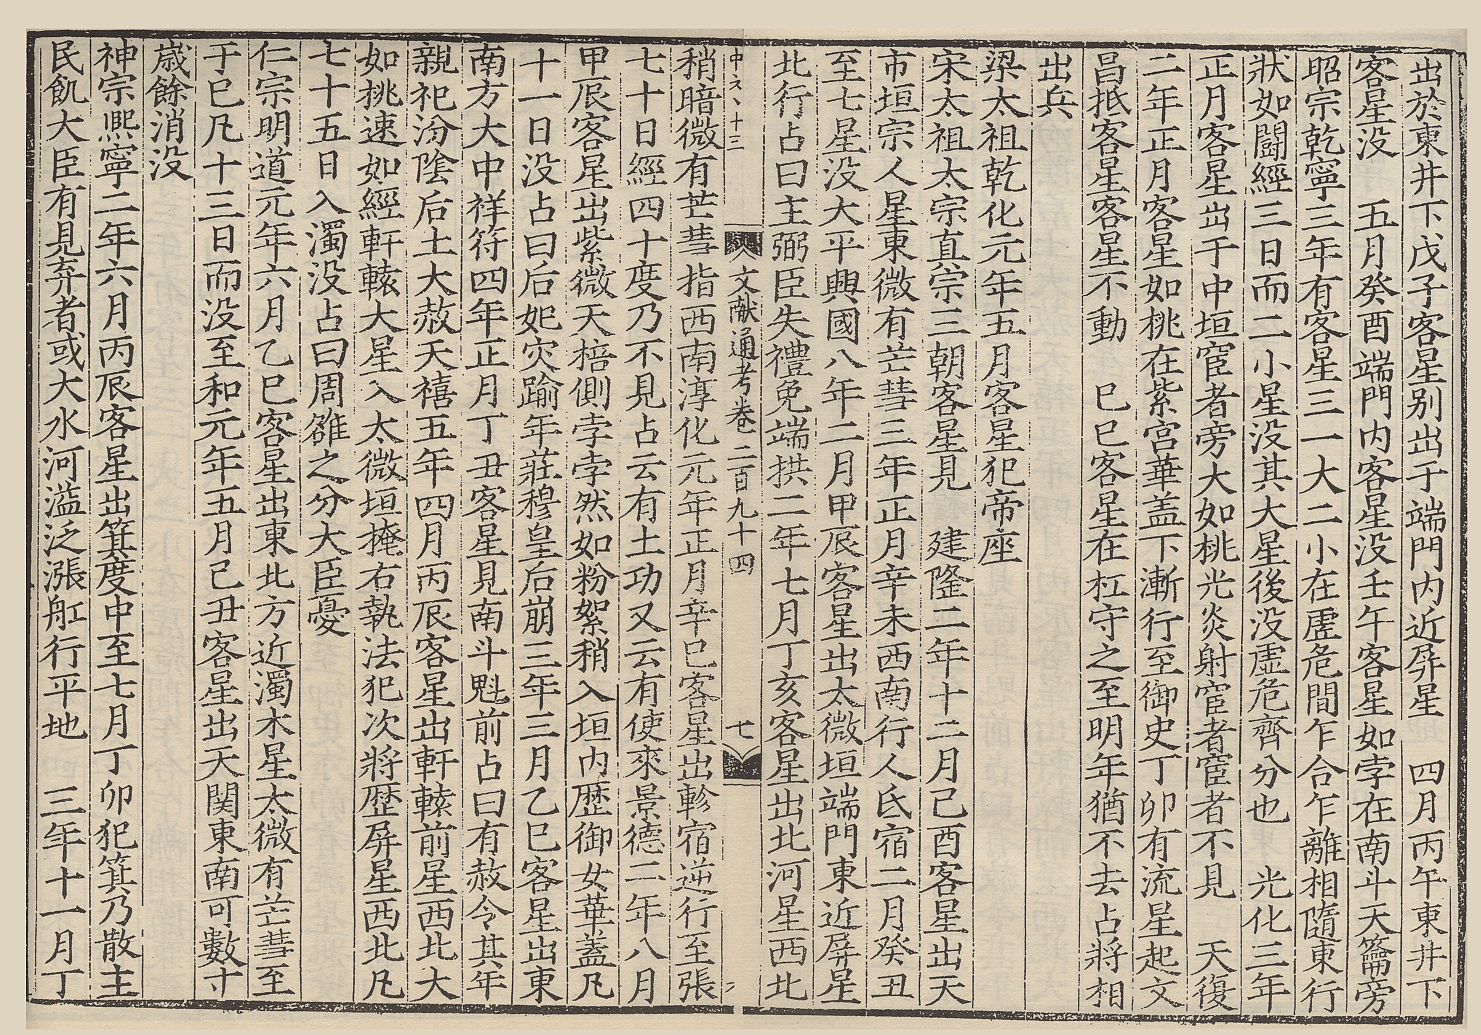 出於東井下戊子客星別出于端門內近屏星　四月丙午東井下
客星没　五月癸酉端門內客星没壬午客星如孛在南斗天籥旁
昭宗乾寧三年有客星三一大二小在虛危間乍合乍離相隨東行
狀如鬭經三日而二小星没其大星後没虛危齊分也　光化三年
正月客星出于中垣宦者旁大如桃光炎射宦者宦者不見　天復
二年正月客星如桃在紫宮華盖下漸行至御史丁卯有流星起文
昌抵客星客星不動　巳巳客星在杠守之至明年猶不去占將相
出兵
梁太祖乾化元年五月客星犯帝座
宋太祖太宗真宗三朝客星見　建隆二年十二月己酉客星出天
市垣宗人星東微有芒彗三年正月辛未西南行入氐宿二月癸丑
至七星没大平興國八年二月甲辰客星出太微垣端門東近屏星
北行占曰主弼臣失禮免端拱二年七月丁亥客星出北河星西北
文献通考卷二百九十四
七
稍暗微有芒彗指西南淳化元年正月辛巳客星出軫宿逆行至張
七十日經四十度乃不見占云有土功又云有使來景德二年八月
甲辰客星出紫微天棓側孛孛然如粉絮稍入垣內歴御女華蓋凡
十一日没占曰后妃灾踰年莊穆皇后崩三年三月乙巳客星出東
南方大中祥符四年正月丁丑客星見南斗魁前占曰有赦令其年
親祀汾陰后土大赦天禧五年四月丙辰客星出軒轅前星西北大
如桃速如經軒轅大星入太微垣掩右執法犯次將歴屏星西北凡
七十五日入濁没占曰周雒之分大臣憂
仁宗明道元年六月乙巳客星出東北方近濁木星太微有芒彗至
于巳凡十三日而没至和元年五月己丑客星出天関東南可數寸
歲餘消没
神宗熙寧二年六月丙辰客星出箕度中至七月丁卯犯箕乃散主
民飢大臣有見弃者或大水河溢泛漲舡行平地　三年十一月丁